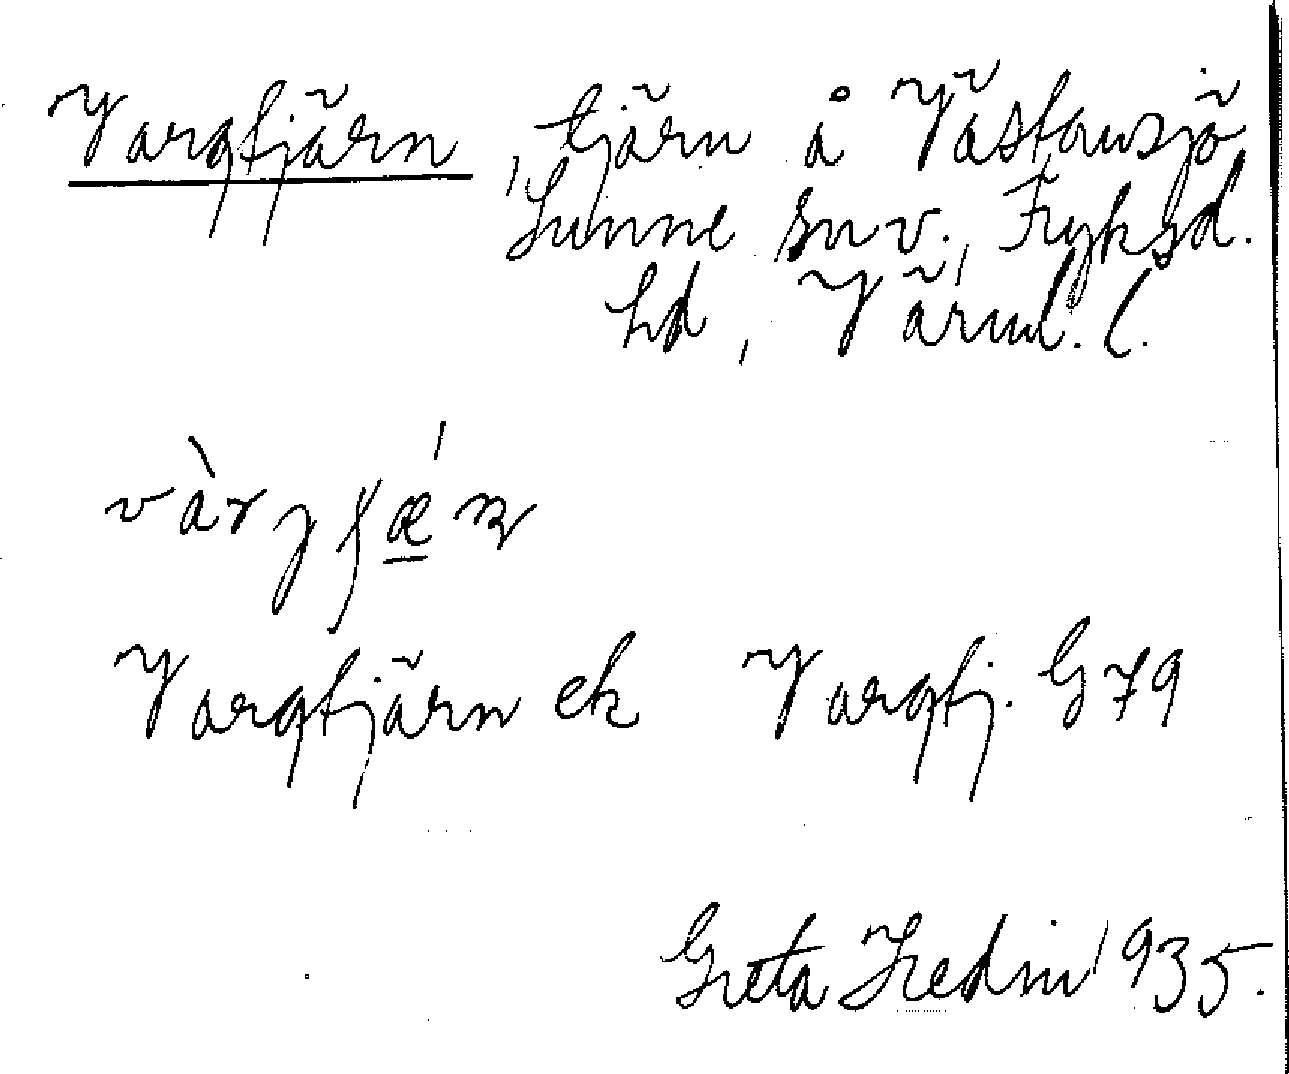 Vargtjärn, tjärn å Västansjö
Sunne sn v., Fryksd.
hd, Värml. l.
Vargtjärn ek Vargtj. G79
Greta Hedin 1935.